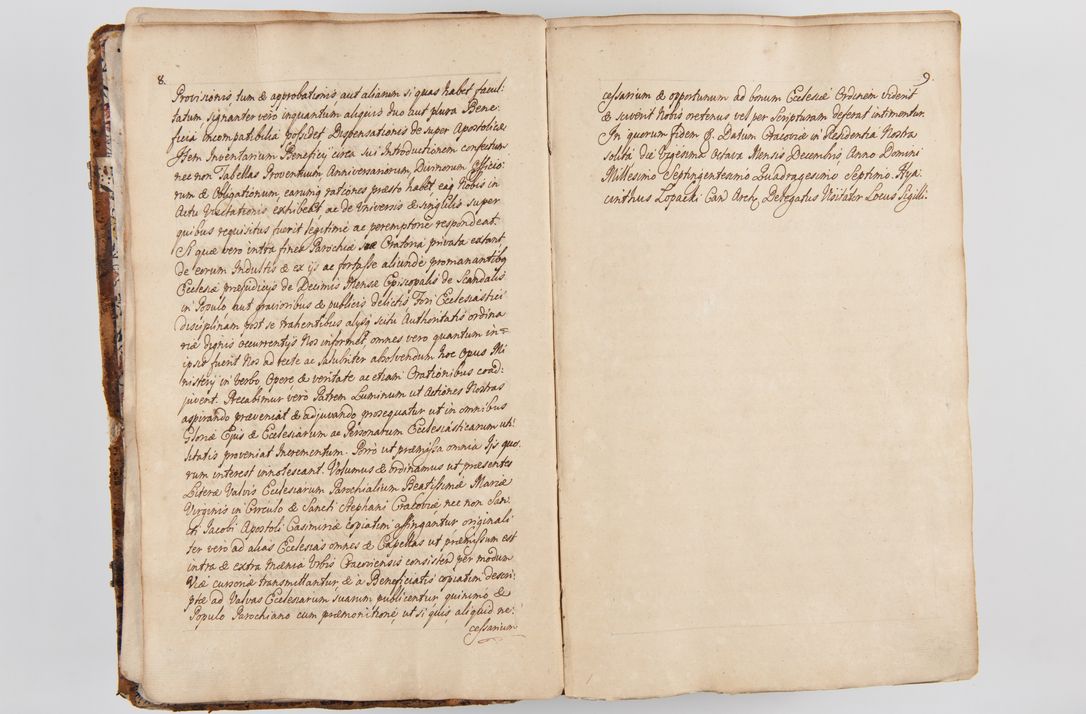 8.
Provisionis, tum & approbationis aut aliarum si quas habet facul:
tatum signanter vero inquantum aliquis duo aut plura Bene:
ficia incompatibilia possidet Dispensationis de super Apostolicæ
Item Inventarium Beneficij circa sui Introductionem confectum
nec non Tabellas Proventuum Anniversariorum, Divinorum Officio:
rum & Obligationum, earumq rationes præsto habet eaq Nobis in
Actu Visitationis exhibeat ac de Universis & singulis super
quibus requisitus fuerit legitime ac peremptorie respondeat.
Si quæ vero intra fines Parochiæ suæ Oratoria privata extant,
de eorum Indultis & ex ijs ac fortasse aliunde promanantibq
Ecclesiæ præjudicijs de Decimis Mensæ Episcopalis de Scandalis
in Populo aut gravioribus & publicis delictis Fori Ecclesiastici
disciplinam post se trahentibus alijsq scitu Authoritatis ordina
riæ dignis occurrentijs Nos informet, omnes vero quantum in=
ipsis fuerit Nos ad recte ac salubriter absolvendum hoc Opus Mi
nisterij in Verbo Opere & veritate ac etiam Orationibus coad:
juvent. Precabimur verò Patrem Luminum ut Actiones Nostras
aspirando præveniat & adjuvando prosequatur ut in omnibus
Gloriæ Ejus & Ecclesiarum ac Personarum Ecclesiasticarum uti:
litatis proveniat Incrementum. Porrò ut præmissa omnia Ijs quo.
rum interest innotescant. Volumus & ordinamus ut præsentes
Literæ Valvis Ecclesiarum Parochialium Beatissimæ Mariæ
Virginis in Circulo & Sancti Stephani Cracoviæ nec non San.
cti Jacobi Apostoli Casimiriæ copiatim affingantur originali
ter vero ad alias Ecclesias omnes & Capellas ut præmissum est
intra & extra Mænia Urbis Cracoviensis consisten. per modum
Viæ cursoriæ transmittantur & à Beneficiatis copiatim descri:
ptæ ad Valvas Ecclesiarum suarum publicentur quinimo &
Populo Parochiano cum præmonitione, ut si quis aliquid ne:
cessarium
9.
cessarium & opportunum ad bonum Ecclesiæ Ordinem viderit
& sciverit Nobis oretenus vel per Scripturam deferat intimentur.
In quorum fidem &. Datum Cracoviæ in Residentia Nostra
solita die Vigesima Octava Mensis Decembris Anno Domini
Millesimo Septingentesimo Quadragesimo Septimo. Hya
cinthus Łopacki Can Arch Delegatus Visitator Locus Sigili.